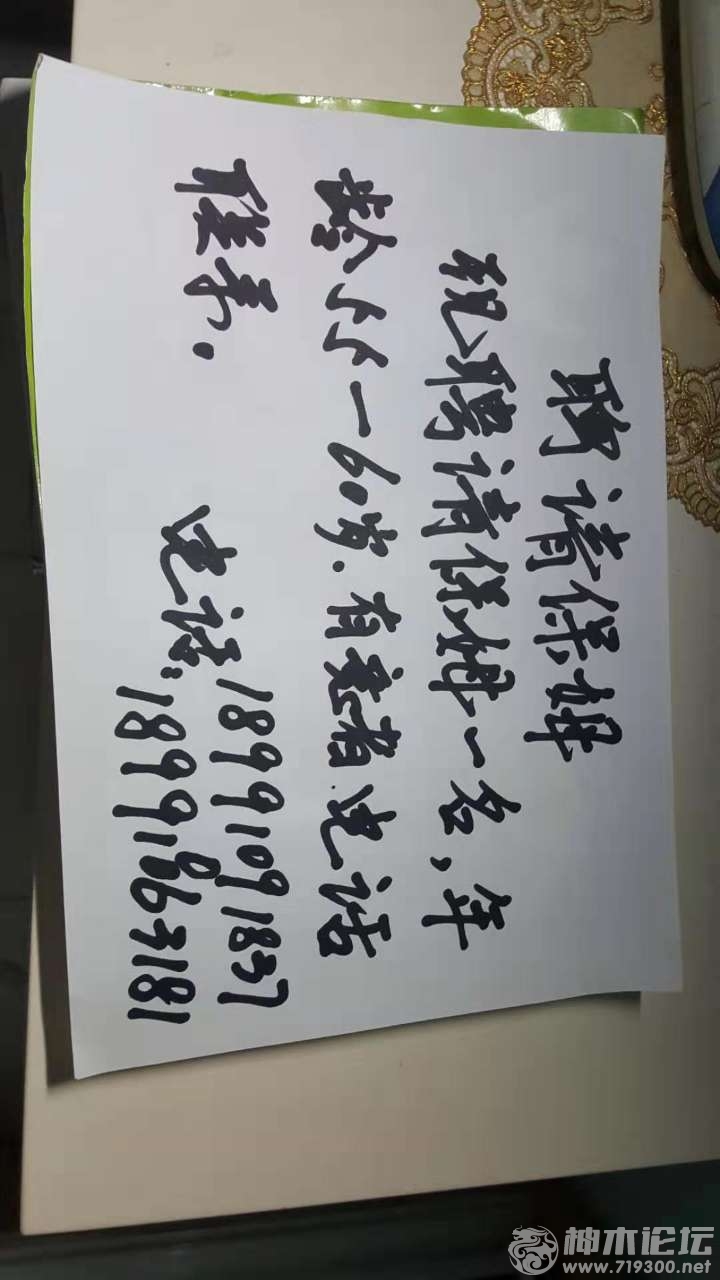 聘请保姆
现聘请保姆一名,年
龄55一60岁.有意者电话
联系.
电话:18991091837
18991863181
神木论坛
www.719300.net